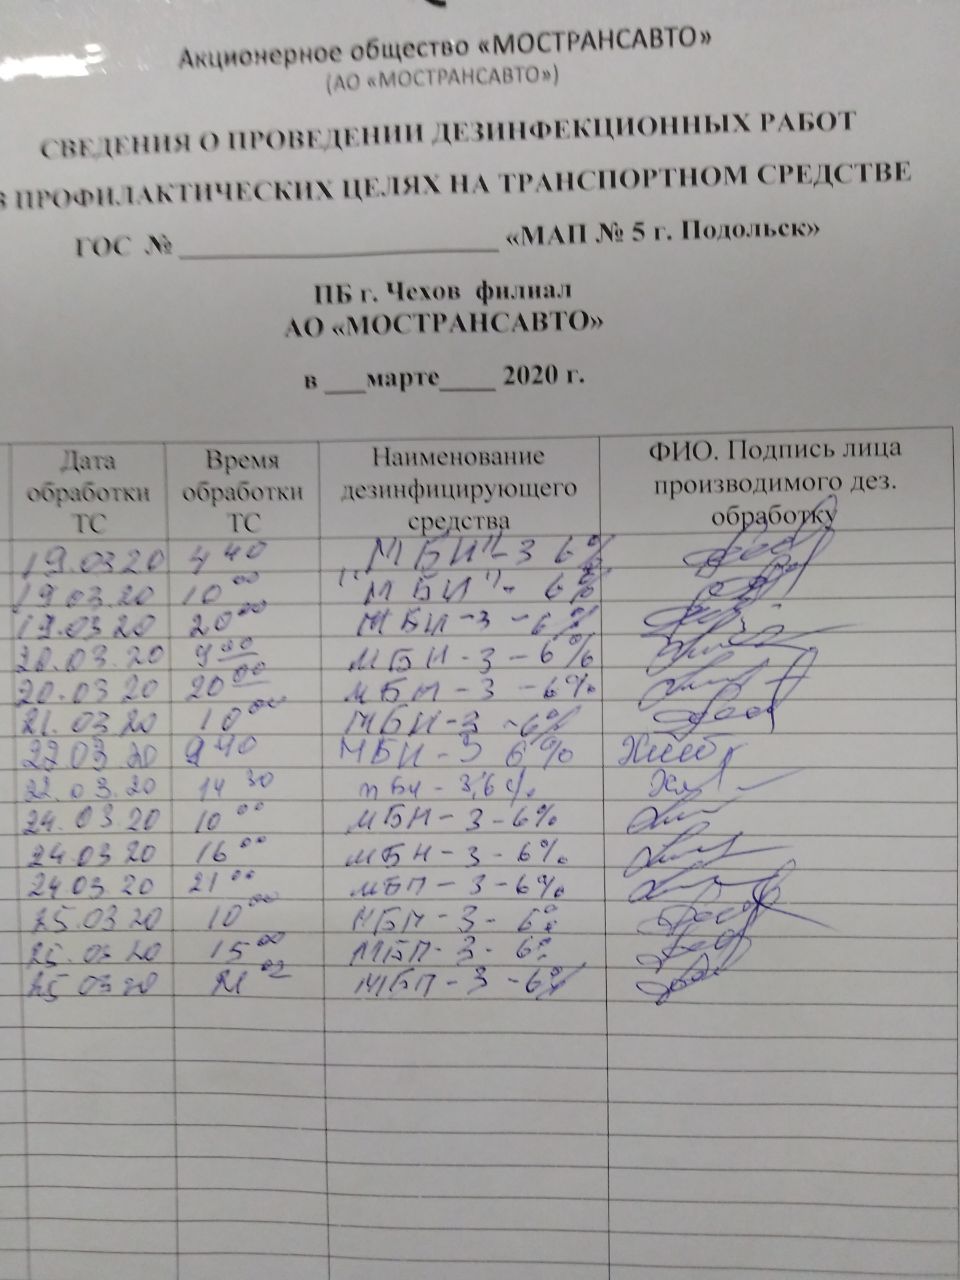 Акционерное общество «МОСТРАНСАВТО»
(АО «МОСТРАНСАВТО»)
СВЕДЕНИЯ О ПРОВЕДЕНИИ ДЕЗИНФЕКЦИОННЫХ РАБОТ
В ПРОФИЛАКТИЧЕСКИХ ЦЕЛЯХ НА ТРАНСПОРТНОМ СРЕДСТВЕ
ГОС № ______________________ «МАП № 5 г. Подольск»
ПБ г. Чехов филиал
АО «МОСТРАНСАВТО»
в ___марте____ 2020 г.
Дата обработки ТС Время обработки ТС Наименование дезинфицирующего средства ФИО. Подпись лица производимого дез. обработку
19.03.20 4 40 "МБИ"-3 6%
19.03.20 10 00 "МБИ"- 6%
19.03.20 20 00 МБИ-3-6%
20.03.20 9 00 МБН-3-6%
20.03.20 20 00 МБП-3-6%
21.03.20 10 00 МБИ-3-6%
22.03.20 9 40 МБИ-3 6%
22.03.20 14 30 3,6%
24.03.20 10 00 МБН-3-6%
24.03.20 16 00 МБН-3-6%
24.03.20 21 00 МБП-3-6%
25.03.20 10 00 МБП-3-6%
25.03.20 15 00 МБП-3-6%
25.03.20 МБП-3-6%